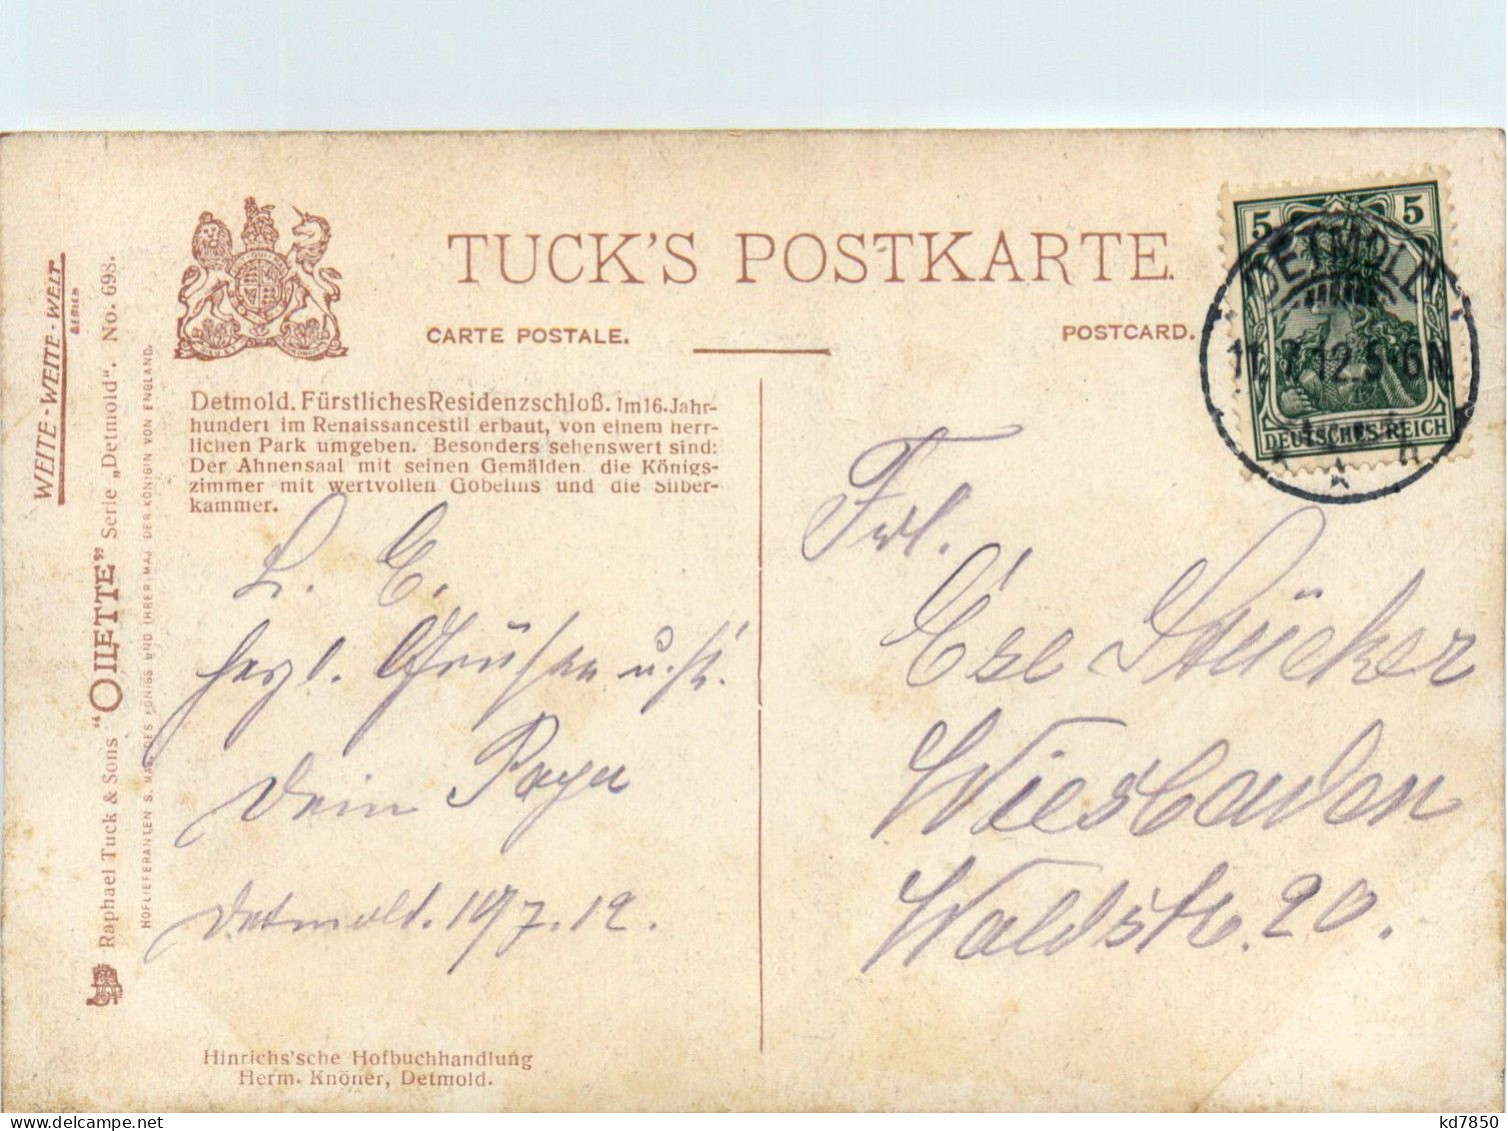 TUCK'S POSTKARTE.
CARTE POSTALE.
POSTCARD.
WEITE-WEITE-WELT
SERIEN
Raphael Tuck & Sons "OILETTE" Serie „Detmold". No. 698.
HOFLIEFERANTEN S. MAJ. DES KÖNIGS UND IHRER MAJ. DER KÖNIGIN VON ENGLAND.
Detmold. Fürstliches Residenzschloß. Im 16. Jahr-
hundert im Renaissancestil erbaut, von einem herr-
lichen Park umgeben. Besonders sehenswert sind:
Der Ahnensaal mit seinen Gemälden, die Königs-
zimmer mit wertvollen Gobelins und die Silber-
kammer.
L. E.
herzl. Grüßen u. K.
Dein Papa
Detmold. 10/7.12.
Hinrichs'sche Hofbuchhandlung
Herm. Knöner, Detmold.
5 5
DEUTSCHES REICH
DETMOLD
11.7.12.5-6N
Frl.
Else Stücker
Wiesbaden
Waldstr. 20.
kd7850